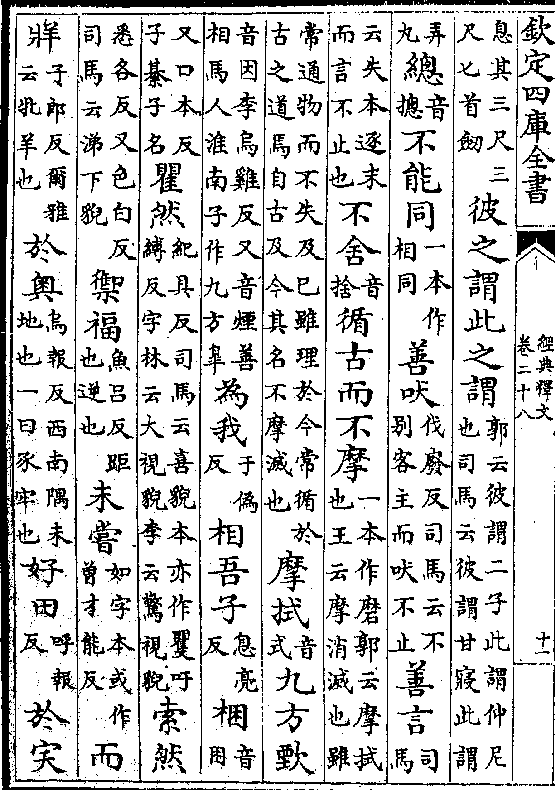 欽定四庫全書
經典釋文
卷二十八
十一
息其三尺三尺匕首劒彼之謂此之謂郭云彼謂二子此謂仲尼也司馬云彼謂甘寢此謂
弄丸總音摠不能同一本作相同善吠伐廢反司馬云不别客主而吠不止善言司馬
云失本逐末而言不止也不舍音捨循古而不摩一本作磨郭云摩拭也王云摩消滅也雖
常通物而不失及已雖理於今常循於古之道焉自古及今其名不摩滅也摩拭音式九方歅
音因李烏雞反又音煙善相馬人淮南子作九方臯為我于偽反相吾子息亮反梱音困
又口本反子綦子名瞿然紀具反司馬云喜貌本亦作矍吁縛反字林云大視貌李云驚視貌索然
悉各反又色白反司馬云涕下貌禦福魚吕反距也逆也未嘗如字本或作曾才能反而
牂子郎反爾雅云牝羊也於奥烏報反西南隅未地也一曰豕牢也好田呼報反於宎